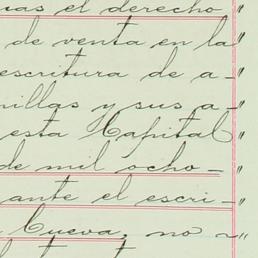 ias el derecho "
de venta en la "
escritura de a- "
nillas y sus a- "
esta Capital "
de mil ocho- "
ante el escri- "
Cueva, no "